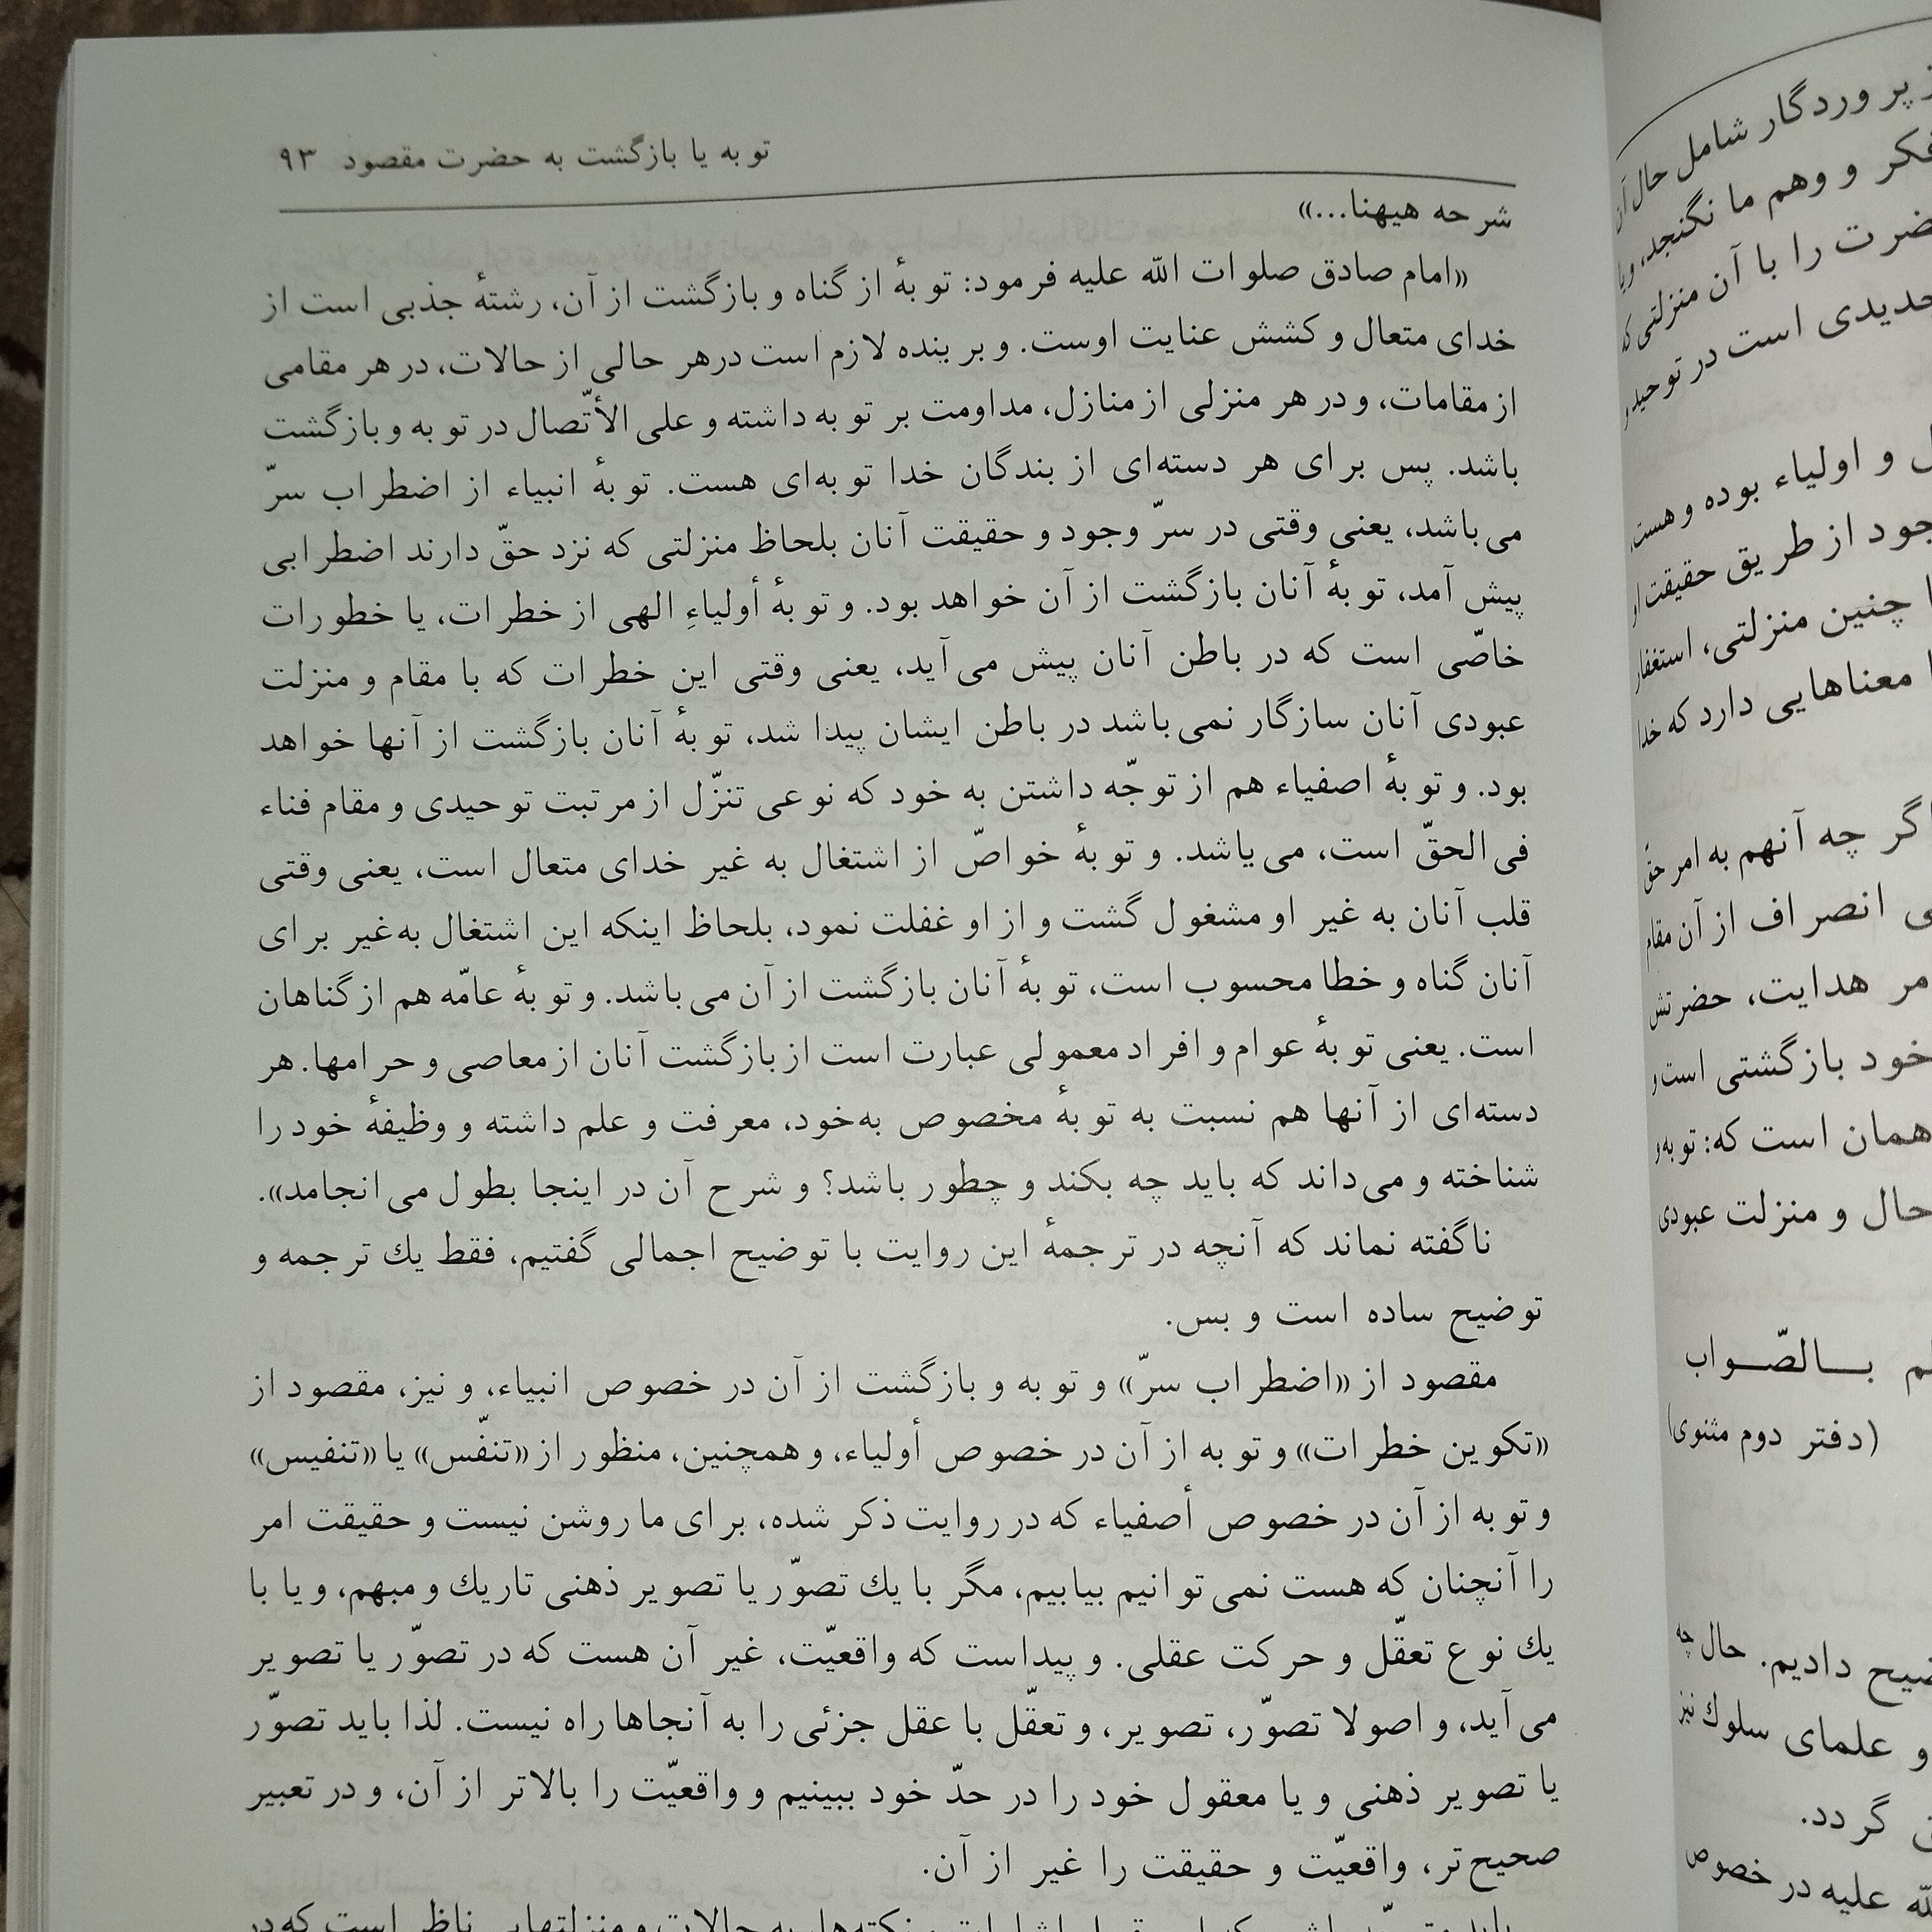 توبه یا بازگشت به حضرت مقصود ۹۳
شرحه هیهنا...»
«امام صادق صلوات الله علیه فرمود: توبهٔ از گناه و بازگشت از آن، رشتهٔ جذبی است از
خدای متعال و کشش عنایت اوست. و بر بنده لازم است درهر حالی از حالات، در هر مقامی
از مقامات، و در هر منزلی از منازل، مداومت بر توبه داشته و علی الأتّصال در توبه و بازگشت
باشد. پس برای هر دسته‌ای از بندگان خدا توبه‌ای هست. توبهٔ انبیاء از اضطراب سرّ
می‌باشد، یعنی وقتی در سرّ وجود و حقیقت آنان بلحاظ منزلتی که نزد حقّ دارند اضطرابی
پیش آمد، توبهٔ آنان بازگشت از آن خواهد بود. و توبهٔ أولیاءِ الهی از خطرات، یا خطورات
خاصّی است که در باطن آنان پیش می‌آید، یعنی وقتی این خطرات که با مقام و منزلت
عبودی آنان سازگار نمی‌باشد در باطن ایشان پیدا شد، توبهٔ آنان بازگشت از آنها خواهد
بود. و توبهٔ اصفیاء هم از توجّه داشتن به خود که نوعی تنزّل از مرتبت توحیدی و مقام فناء
فی الحقّ است، می‌یاشد. و توبهٔ خواصّ از اشتغال به غیر خدای متعال است، یعنی وقتی
قلب آنان به غیر او مشغول گشت و از او غفلت نمود، بلحاظ اینکه این اشتغال به‌غیر برای
آنان گناه و خطا محسوب است، توبهٔ آنان بازگشت از آن می‌باشد. و توبهٔ عامّه هم از گناهان
است. یعنی توبهٔ عوام و افراد معمولی عبارت است از بازگشت آنان از معاصی و حرامها. هر
دسته‌ای از آنها هم نسبت به توبهٔ مخصوص به‌خود، معرفت و علم داشته و وظیفهٔ خود را
شناخته و می‌داند که باید چه بکند و چطور باشد؟ و شرح آن در اینجا بطول می‌انجامد».
ناگفته نماند که آنچه در ترجمهٔ این روایت با توضیح اجمالی گفتیم، فقط یك ترجمه و
توضیح ساده است و بس.
مقصود از «اضطراب سرّ» و توبه و بازگشت از آن در خصوص انبیاء، و نیز، مقصود از
«تکوین خطرات» و توبه از آن در خصوص أولیاء، و همچنین، منظور از «تنفّس» یا «تنفیس»
و توبه از آن در خصوص أصفیاء که در روایت ذکر شده، برای ما روشن نیست و حقیقت امر
را آنچنان که هست نمی‌توانیم بیابیم، مگر با یك تصوّر یا تصویر ذهنی تاریك و مبهم، و یا با
یك نوع تعقّل و حرکت عقلی. و پیداست که واقعیّت، غیر آن هست که در تصوّر یا تصویر
می‌آید، و اصولا تصوّر، تصویر، و تعقّل با عقل جزئی را به آنجاها راه نیست. لذا باید تصوّر
یا تصویر ذهنی و یا معقول خود را در حدّ خود ببینیم و واقعیّت را بالاتر از آن، و در تعبیر
صحیح‌تر، واقعیّت و حقیقت را غیر از آن.
پروردگار شامل حال
و وهم ما نگنجد، و یا
را با آن منزلتی
است در توحید
و اولیاء بوده و هست
از طریق حقیقت
چنین منزلتی، استغفار
معناهایی دارد که خدا
اگر چه آنهم به امر حقّ
انصراف از آن مقام
هدایت، حضرتش
خود بازگشتی است و
همان است که: توبه و
حال و منزلت عبودی
بــالصّــواب
(دفتر دوم مثنوی)
دادیم. حال چه
و علمای سلوك نیز
گردد.
علیه در خصوص